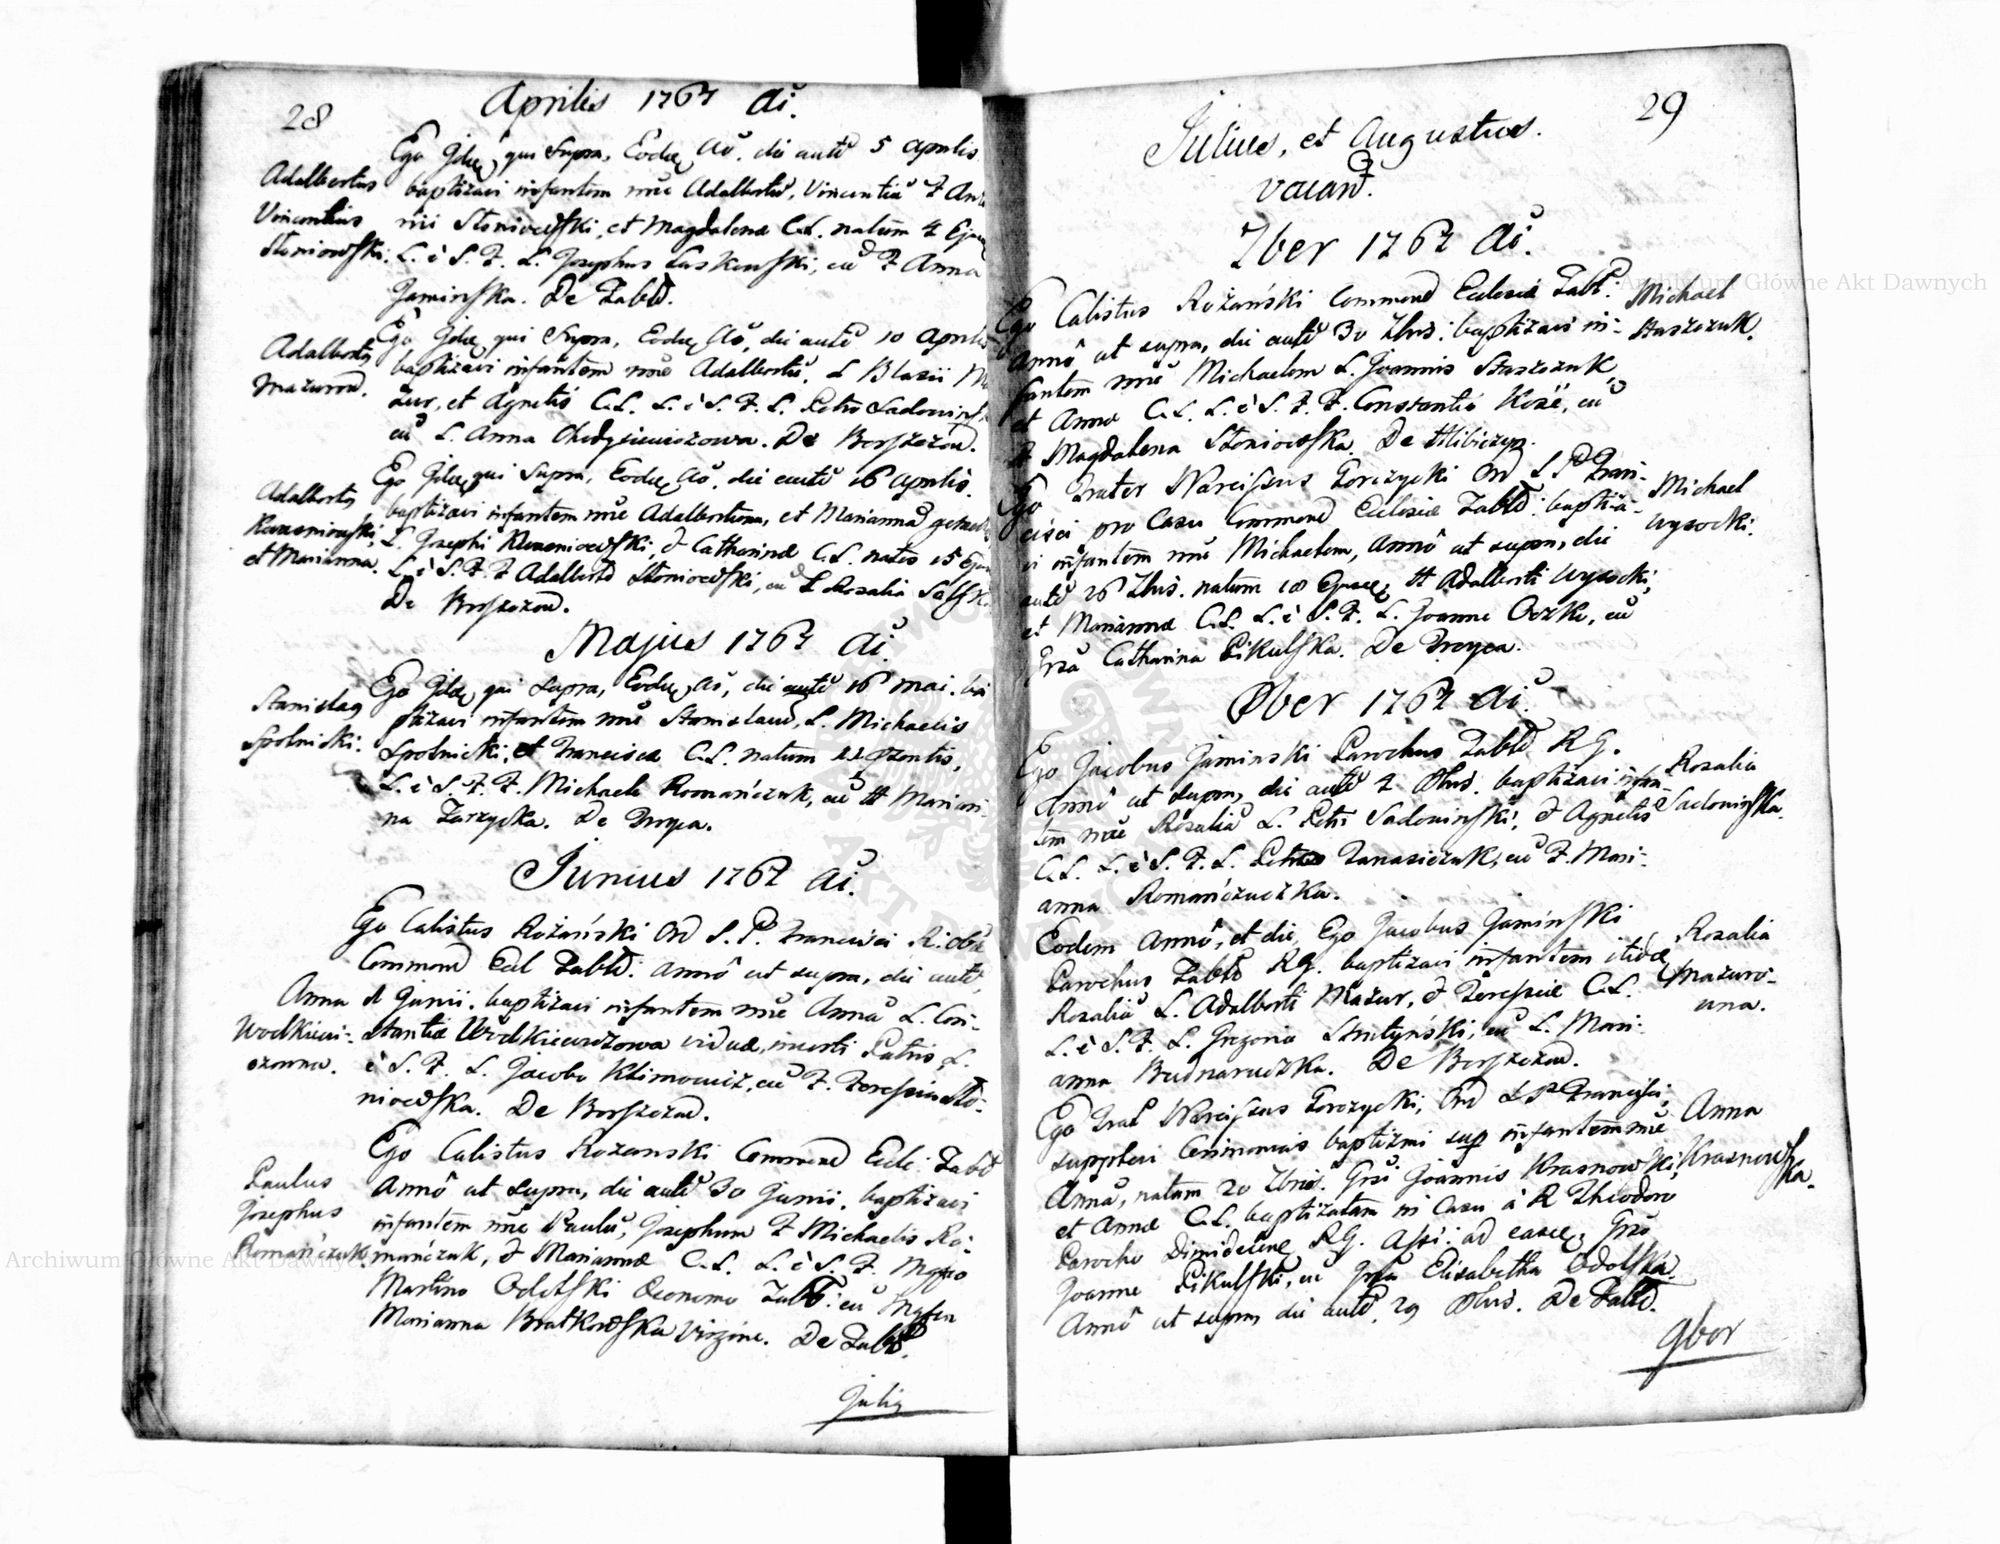 28
Aprilis 1767 Ai.
Ego Idem qui Supra, Eodem Aō. die autē 5 Aprilis
Adalbertus
Vincentius
Słoniowski.
baptizavi infantem nōē Adalbertū, Vincentiū F Anto
nii Słoniowski, et Magdalenæ C.L. natum 4 Ejus
L. è S. F. L. Josephus Laskowski, cū F Anna
Jaminska. De Zabłō.
Adalbertus
Mazurow.
Ego Idem qui Supra, Eodem Aō, die autē 10 Aprilis
baptizavi infantem nōē Adalbertū, L Blasii Ma
zur, et Agnetis C.L. L. è S. F. L. Petro Sadowinsk
cū L. Anna
De Borszczow.
Adalbertus
Krzeniowski,
et Marianna.
Ego Idem qui Supra, Eodem Aō. die autē 16 Aprilis.
baptizavi infantem nōē Adalbertum, et Mariannā
L. Josephi Krzeniowski, & Catharinæ C.L. natos 15 Ejus
L. è S. F. F Adalberto Słoniowski, cū L Rosalia
De Borszczow.
Majus 1767 Ai.
Stanislaus
Spolnicki.
Ego Idem qui Supra, Eodem Aō, die autē 16 Mai. ba
ptizavi infantem nōē Stanislaum, L. Michaelis
Spolnicki, et Francisca C.L. natum
L. è S. F. F. Michaele Romańczuk, cū H Marian-
na Zarzycka. De
Junius 1767 Ai.
Ego Calistus Rożański Ord S. P. Francisci
Commend Eccl Zabłō: Annō ut supra, die autē
Anna
Wodkiewi-
czowna.
Junii. baptizavi infantem nōē Annā L. Con-
stantiæ Wodkiewiczowa viduæ, Patris L.
è S. F. L. Jacobo Klimowicz, cū F. Theressia Sło-
niowska. De Borszczow.
Paulus
Josephus
Romańczuk.
Ego Calistus Rożanski Commend Eccle: Zabłō
Annō ut supra, die autē 30 Junii. baptizavi
infantem nōē Paulū, Josephum F Michaelis Ro-
mańczuk, & Marianna C.L. L. è S. F. Mgfco
Martino Odolski Oeconomo Zabłō: cū Mgfca
Marianna Bratkowska Virgine. De Zabłō.
Julius
29
Julius, et Augustus.
vacant.
7ber 1767 Ai.
Michael
Staszczuk.
Ego Calistus Rożański Commend Ecclesiæ Zabł:
Annō ut supra, die autē 30 7bris: baptizavi in-
fantem nōē Michaelem L. Joannis Staszczuk
et Anna C.L. L. è S. F. F. Constantio cū
H Magdalena Słoniowska. De
Michael
Wysocki.
Ego Frater Narcissus Gorczycki Ord S P Fran-
cisci pro Casu Commend Ecclesiæ Zabłō: baptiza-
vi infantem nōē Michaelem, Annō ut supra, die
autē 26 7bris. natum 18 Ejusdem H Adalberti Wysocki,
et Marianna C.L. L. è S. F. L. Joanne cū
Grsa Catharina Pikulska. De
8ber 1767 Ai.
Rosalia
Sadowinska.
Ego Jacobus Jaminski Parochus Zabłō R.G.
Annō ut supra, die autē 4 8bris. baptizavi infan-
tem nōē Rosaliā L. Petri Sadowinski, & Agnetis
C.L. L. è S. F. L. Petrus Panasiczuk, cū F. Mari-
anna Romańczuczka.
Rosalia
Mazuro-
wna.
Eodem Annō, et die, Ego Jacobus Jaminski
Parochus Zabłō R.G. baptizavi infantem itidē
Rosaliā L. Adalberti Mazur, & Teressiæ C.L.
L. è S. F. L. Gregorio cū L. Mari-
anna Budnaruczka. De Borszczow.
Anna
Krasnows-
ka.
Ego Frat Narcissus Gorczycki, Ord S P Francisci,
supplevi Cerimonias baptizmi sup infantem nōē
Annā, natam 20 7bris. Grsi Joannis Krasnowski,
et Annæ C.L. baptizatam in Casu à R Theodoro
Parocho R.G. Assi: ad Grso
Joanne Pikulski, cū Grsa Elisabetha Odolska.
Annō ut supra, die autē 29 8bris. De Zabłō.
9ber
Archiwum Główne Akt Dawnych
Archiwum Główne Akt Dawnych